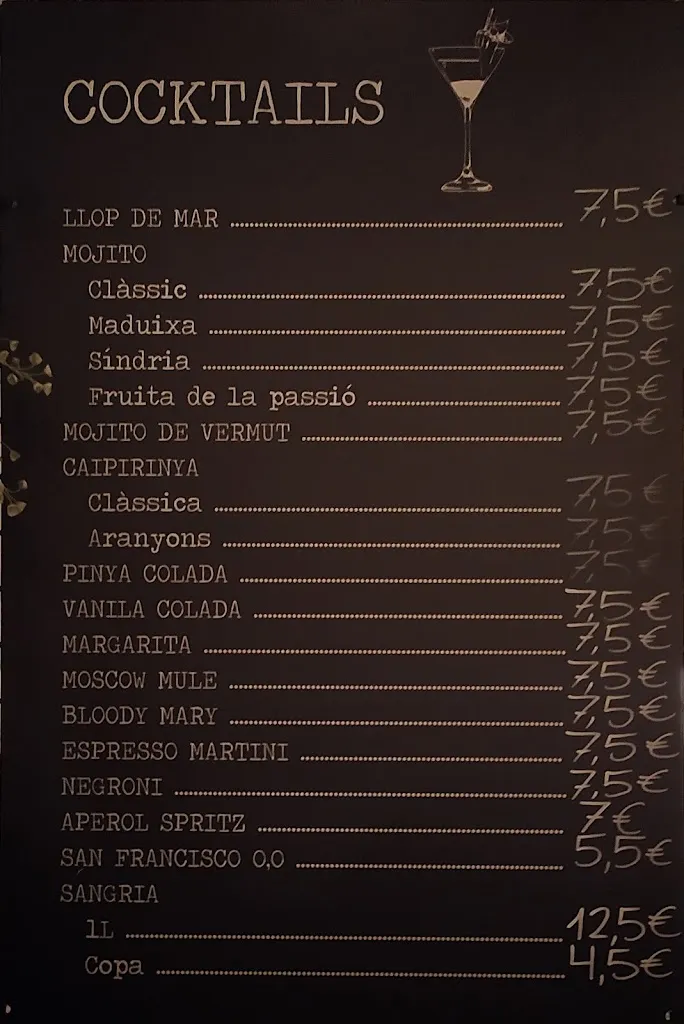 COCKTAILS
LLOP DE MAR 7,5€
MOJITO
Clàssic 7,5€
Maduixa 7,5€
Síndria 7,5€
Fruita de la passió 7,5€
MOJITO DE VERMUT 7,5€
CAIPIRINYA
Clàssica 7,5€
Aranyons 7,5€
PINYA COLADA 7,5€
VANILA COLADA 7,5€
MARGARITA 7,5€
MOSCOW MULE 7,5€
BLOODY MARY 7,5€
ESPRESSO MARTINI 7,5€
NEGRONI 7,5€
APEROL SPRITZ 7€
SAN FRANCISCO 0,0 5,5€
SANGRIA
1L 12,5€
Copa 4,5€